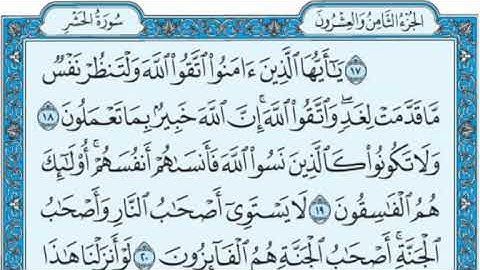 الجزء الثامن والعشرون
سورة الحشر
١٧ يَٰٓأَيُّهَا ٱلَّذِينَ ءَامَنُوا۟ ٱتَّقُوا۟ ٱللَّهَ وَلْتَنظُرْ نَفْسٌ
مَّا قَدَّمَتْ لِغَدٍ ۖ وَٱتَّقُوا۟ ٱللَّهَ ۚ إِنَّ ٱللَّهَ خَبِيرٌۢ بِمَا تَعْمَلُونَ ١٨
وَلَا تَكُونُوا۟ كَٱلَّذِينَ نَسُوا۟ ٱللَّهَ فَأَنسَىٰهُمْ أَنفُسَهُمْ ۚ أُو۟لَٰٓئِكَ
هُمُ ٱلْفَٰسِقُونَ ١٩ لَا يَسْتَوِىٓ أَصْحَٰبُ ٱلنَّارِ وَأَصْحَٰبُ
ٱلْجَنَّةِ ۚ أَصْحَٰبُ ٱلْجَنَّةِ هُمُ ٱلْفَآئِزُونَ ٢٠ لَوْ أَنزَلْنَا هَٰذَا